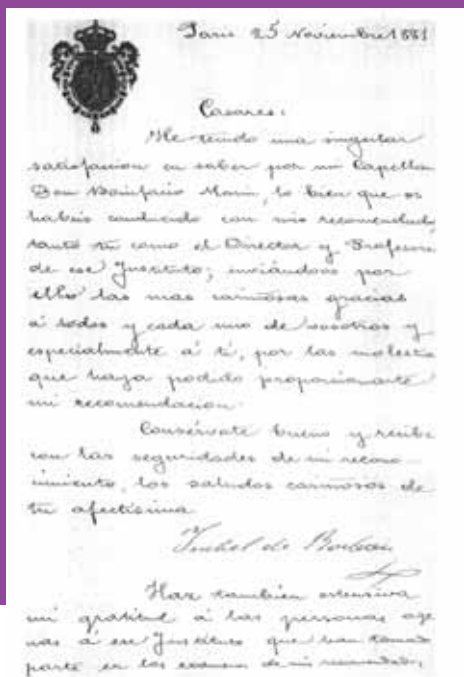 Paris 25 Noviembre 1881
Casares:
He tenido una singular
satisfaccion en saber por mi Capellan
Don Bonifacio Marin, lo bien que os
habeis conducido con mis recomendados
tanto tu como el Director y Profesores
de ese Instituto; enviándoos por
ello las mas cariñosas gracias
á todos y cada uno de vosotros y
especialmente á tí, por las molestias
que haya podido proporcionarte
mi recomendacion.
Consérvate bueno y recibe
con las seguridades de mi recono
cimiento, los saludos cariñosos de
tu afectisima
Isabel de Borbon
Haz tambien estensiva
mi gratitud á las personas age
nas á ese Instituto que han tomado
parte en los examenes de mis recomendados,